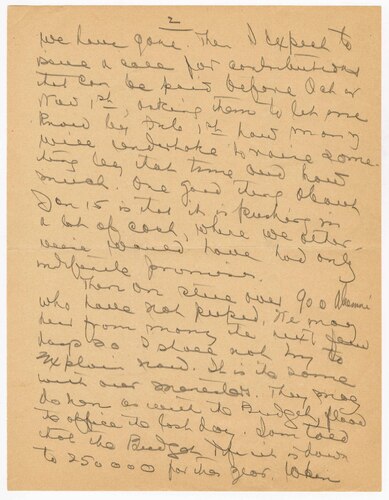 2
we have gone. Then I expect to
send a call for contributions
that can be paid before Oct or
Nov 1st, asking them to let me
know by July 1st how many
will undertake to raise some-
thing by that time and how
much. One good thing about
Jan 15 is that it is pushing in
a lot of cash, where we other-
wise would have had only
indefinite promises.
There are still over 900 Alumni
who have not replied. We may
hear from many the next few
days so I shall not try to
explain now. It is the same
with our
do now as with the Budget, flood
the office the last day. I am told
that the Budget is down
to 250000 for this year. When